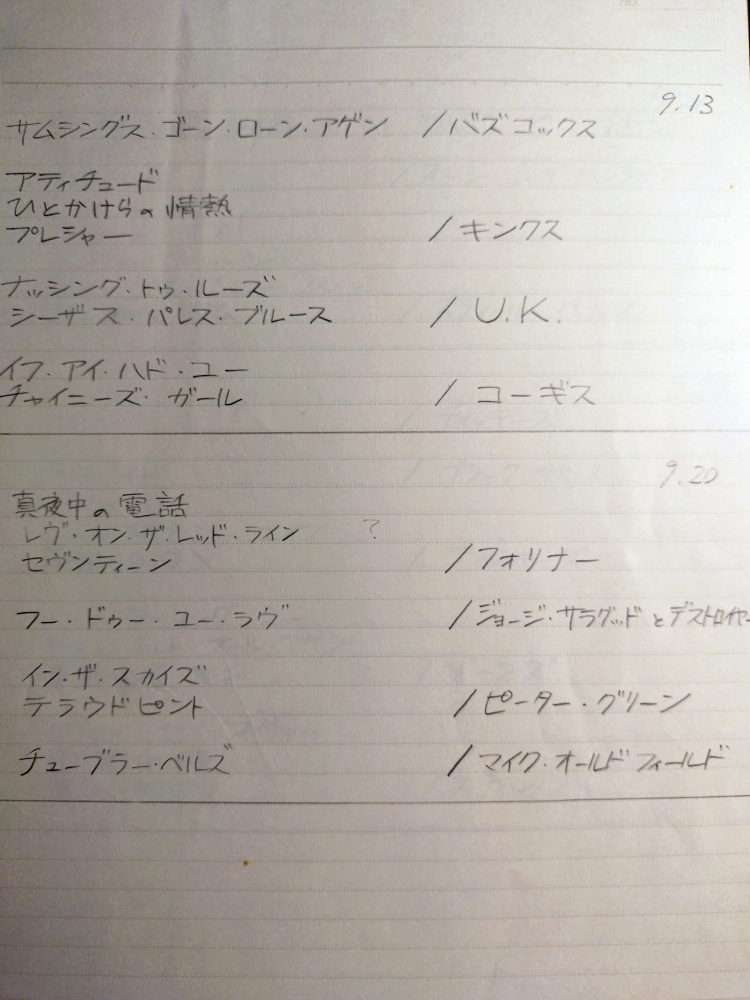 9.13
サムシングス・ゴーン・ローン・アゲン /バズコックス
アティチュード
ひとかけらの情熱
プレシャー /キンクス
ナッシング・トゥ・ルーズ
シーザス・パレス・ブルース / U.K.
イフ・アイ・ハド・ユー
チャイニーズ・ガール / コーギス
9.20
真夜中の電話
レヴ・オン・ザ・レッド・ライン ?
セヴンティーン /フォリナー
フー・ドゥー・ユー・ラヴ /ジョージ・サラグッドとデストロイヤー
イン・ザ・スカイズ
テラウドピント /ピーター・グリーン
チューブラー・ベルズ / マイク・オールドフィールド